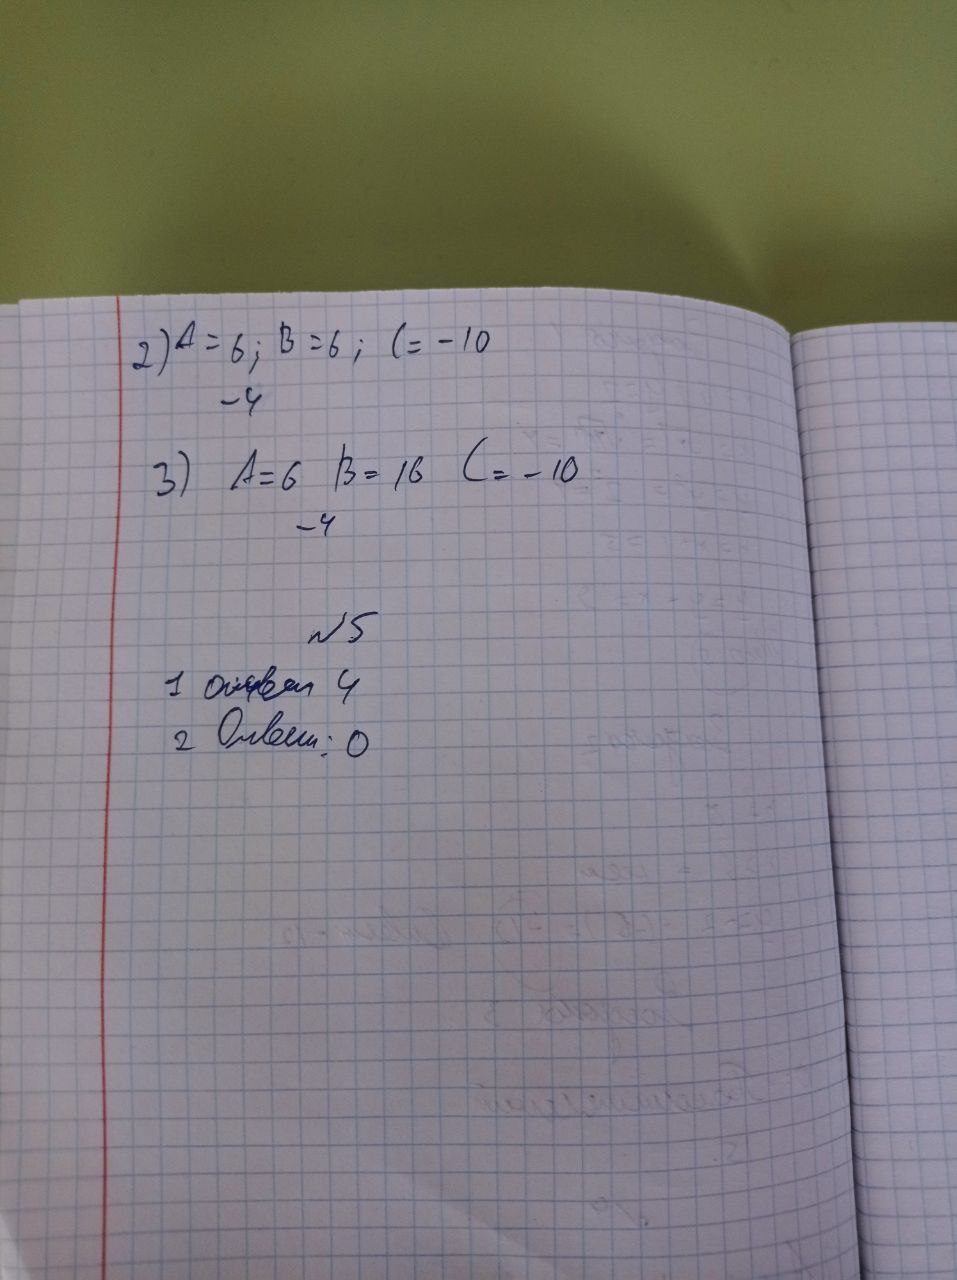 2) A = 6; B = 6; C = -10
-4
3) A = 6 B = 16 C = -10
-4
№5
1 ответ 4
2 Ответ: 0